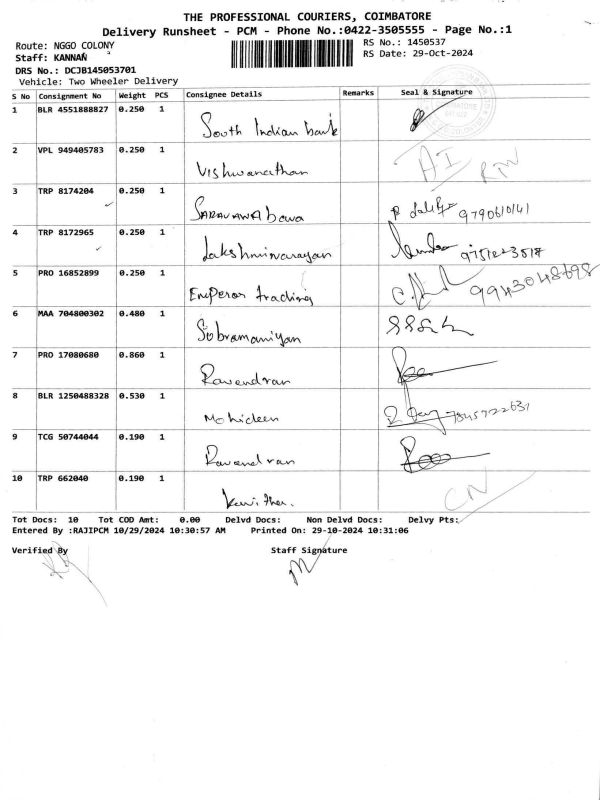 THE PROFESSIONAL COURIERS, COIMBATORE
Delivery Runsheet - PCM - Phone No.:0422-3505555 - Page No.:1
Route: NGGO COLONY RS No.: 1450537
Staff: KANNAN RS Date: 29-Oct-2024
DRS No.: DCJB145053701
Vehicle: Two Wheeler Delivery
S No Consignment No Weight PCS Consignee Details Remarks Seal & Signature
1 BLR 4551888827 0.250 1
South Indian bank
2 VPL 949405783 0.250 1
Vishwanathan
3 TRP 8174204 0.250 1
SARAVANA bava 9790610141
4 TRP 8172965 0.250 1
Lakshminarayan 9751223517
5 PRO 16852899 0.250 1
Emperor trading 9943048698
6 MAA 704800302 0.480 1
Subramaniyan
7 PRO 17080680 0.860 1
Ravendran
8 BLR 1250488328 0.530 1
Mohideen
9 TCG 50744044 0.190 1
Ravendran
10 TRP 662040 0.190 1
Kavitha. CN
Tot Docs: 10 Tot COD Amt: 0.00 Delvd Docs: Non Delvd Docs: Delvy Pts:
Entered By :RAJIPCM 10/29/2024 10:30:57 AM Printed On: 29-10-2024 10:31:06
Verified By Staff Signature